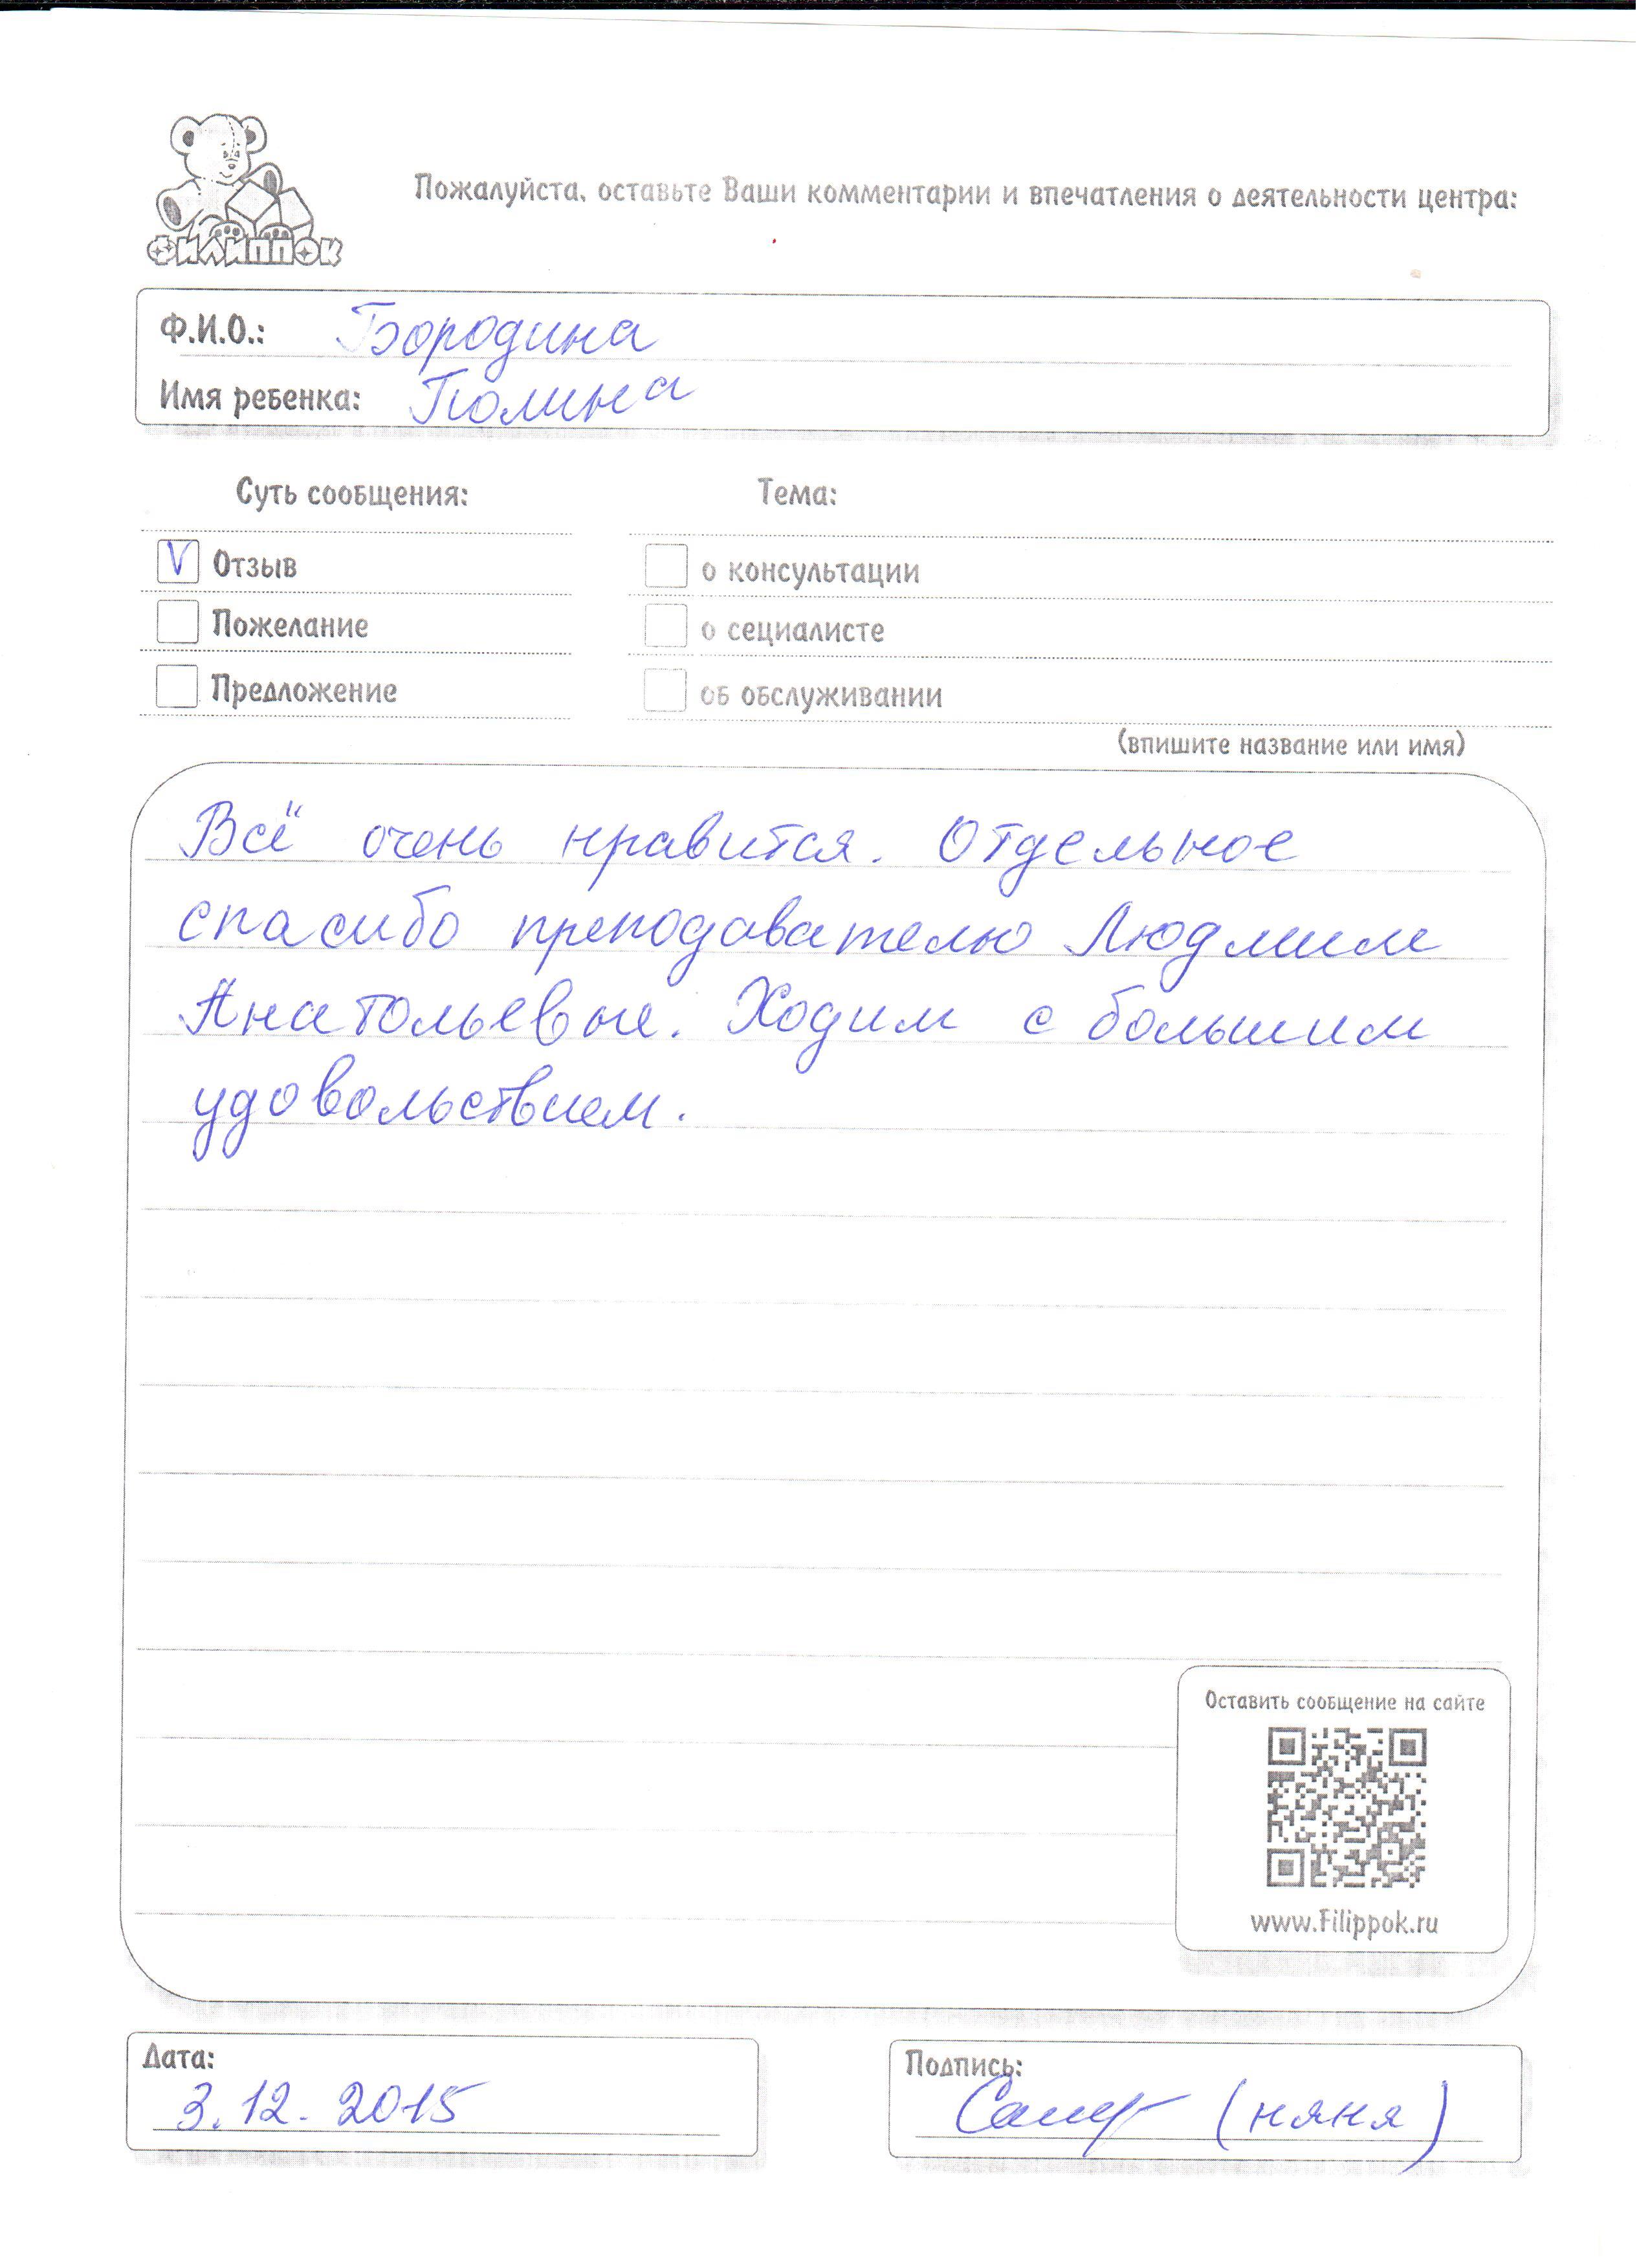 Пожалуйста, оставьте Ваши комментарии и впечатления о деятельности центра:
ФИЛИППОК
Ф.И.О.: Бородина
Имя ребенка: Полина
Суть сообщения: Тема:
V Отзыв о консультации
Пожелание о сециалисте
Предложение об обслуживании
(впишите название или имя)
Всё очень нравится. Отдельное
спасибо преподавателю Людмиле
Анатольевне. Ходим с большим
удовольствием.
Оставить сообщение на сайте
www.Filippok.ru
Дата: Подпись:
3.12.2015 (няня)